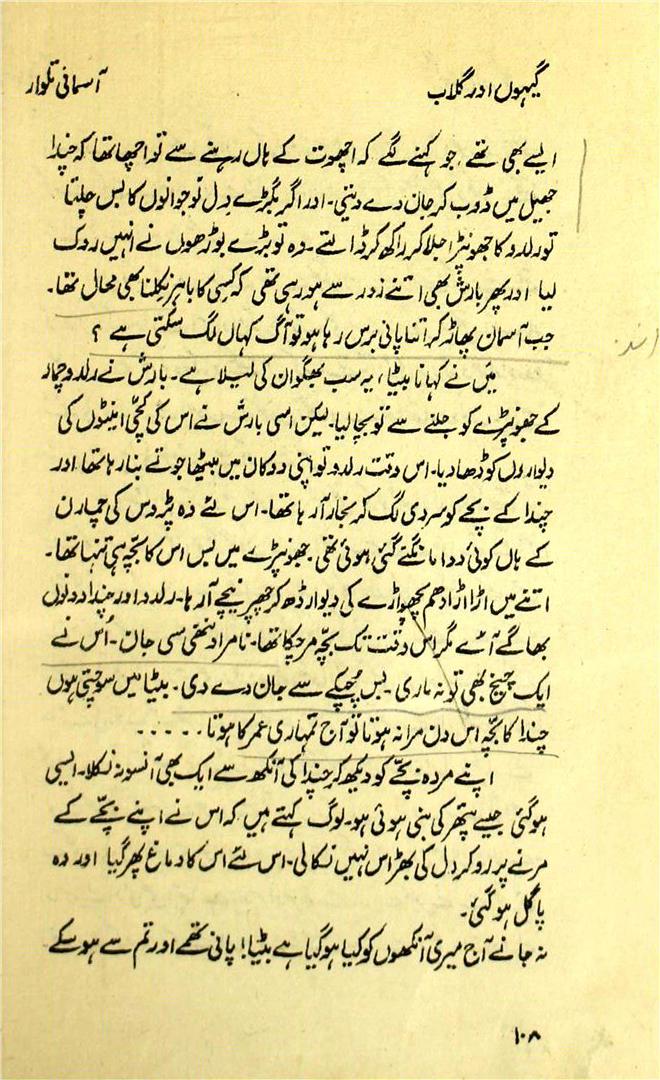 گیہوں اور گلاب
آسمانی تلوار
ایسے بھی تھے، جو کہنے لگے کہ اچھوت کے ہاں رہنے سے تو اچھا تھا کہ چندا
جھیل میں ڈوب کر جان دے دیتی۔ اور اگر بگڑے دل نوجوانوں کا بس چلتا
تو رلدو کا جھونپڑا جلا کر راکھ کر ڈالتے۔ وہ تو بڑے بوڑھوں نے انہیں روک
لیا اور پھر بارش بھی اتنے زور سے ہو رہی تھی کہ کسی کا باہر نکلنا بھی محال تھا۔
جب آسمان پھاڑ کر اتنا پانی برس رہا ہو تو آگ کہاں لگ سکتی ہے ؟
میں نے کہا نا بیٹا، یہ سب بھگوان کی لیلا ہے۔ بارش نے رلدو چمار
کے جھونپڑے کو جلنے سے تو بچا لیا۔ لیکن اسی بارش نے اس کی کچی اینٹوں کی
دیواروں کو ڈھا دیا۔ اس وقت رلدو تو اپنی دوکان میں بیٹھا جوتے بنا رہا تھا اور
چندا کے بچے کو سردی لگ کر بخار آ رہا تھا۔ اس لئے وہ پڑوس کی چمارن
کے ہاں کوئی دوا مانگتے گئی ہوئی تھی۔ جھونپڑے میں بس اس کا بچہ ہی تنہا تھا۔
اتنے میں اڑا اڑا دھم پچھواڑے کی دیوار ڈھ کر چھپر نیچے آ رہا۔ رلدو اور چندا دونوں
بھاگے آئے مگر اس وقت تک بچہ مر چکا تھا۔ نامراد ننھی سی جان۔ اُس نے
ایک چیخ بھی تو نہ ماری۔ بس چپکے سے جان دے دی۔ بیٹا میں سوچتی ہوں
چندا کا بچہ اس دن مرا نہ ہوتا تو آج تمہاری عمر کا ہوتا . . . . .
اپنے مردہ بچے کو دیکھ کر چندا کی آنکھ سے ایک بھی آنسو نہ نکلا۔ ایسی
ہو گئی جیسے پتھر کی بنی ہوئی ہو۔ لوگ کہتے ہیں کہ اس نے اپنے بچے کے
مرنے پر رو کر دل کی بھڑاس نہیں نکالی۔ اس لئے اس کا دماغ پھر گیا اور وہ
پاگل ہو گئی۔
نہ جانے آج میری آنکھوں کو کیا ہو گیا ہے بیٹا! پانی تھمے اور تم سے ہو سکے
۱۰۸